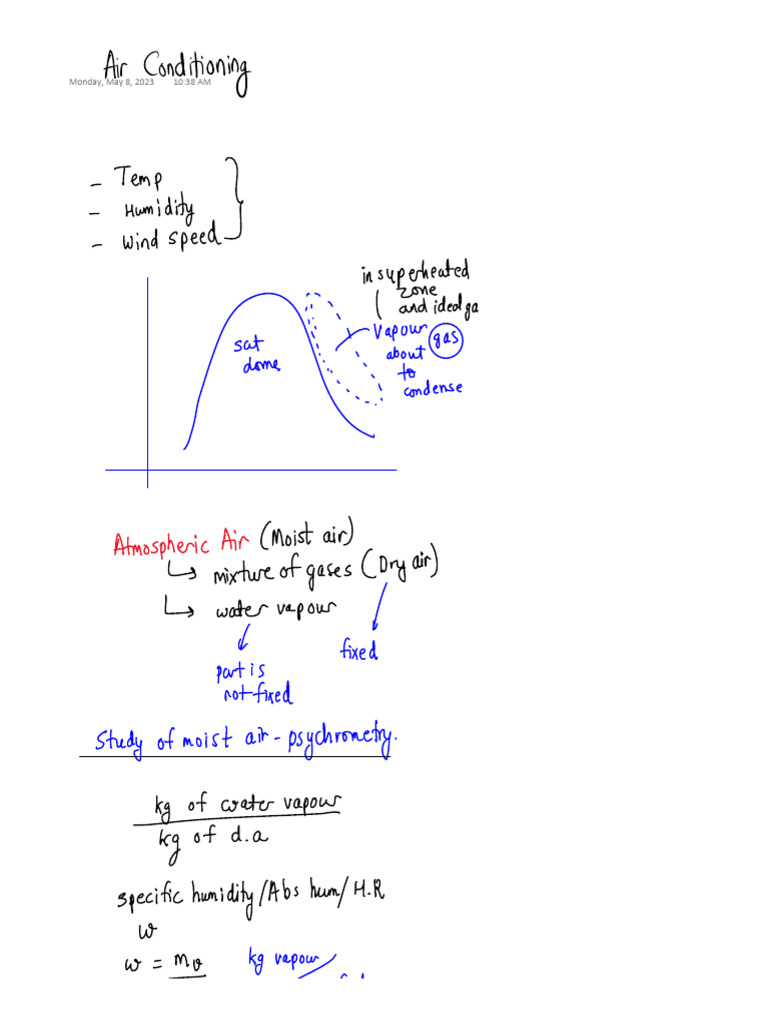 Air Conditioning
Monday, May 8, 2023 10:38 AM
- Temp
- Humidity
- Wind speed
in superheated
zone
and ideal ga
Vapour gas
about
to
condense
sat
dome
Atmospheric Air (Moist air)
↳ mixture of gases (Dry air)
↳ water vapour
fixed
part is
not fixed
Study of moist air - psychrometry.
kg of water vapour
kg of d.a
specific humidity/Abs hum/H.R
w
w = mv kg vapour/